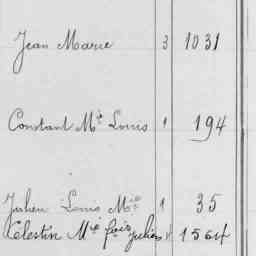 Jean Marie 3 1031
Constant Mie Louis 1 194
Julien Louis Mie 1 35
Célestin Mie fçois Julien 4 1564